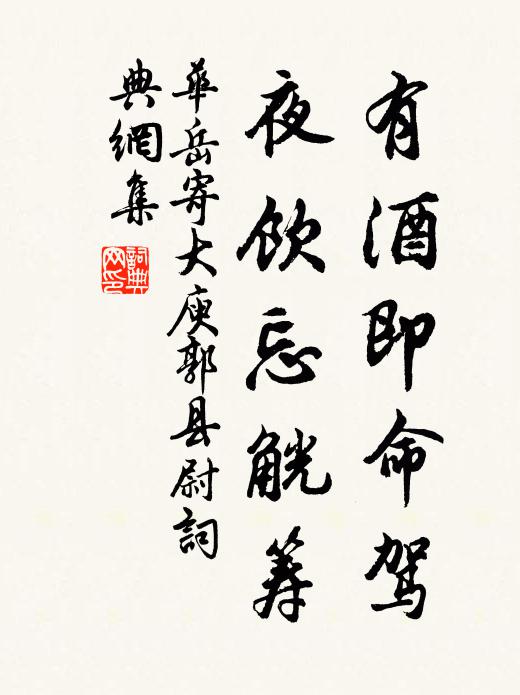 有酒即命驾
夜饮忘觥筹
華岳寄大庾郭县尉詞
典網集
詞典
网印